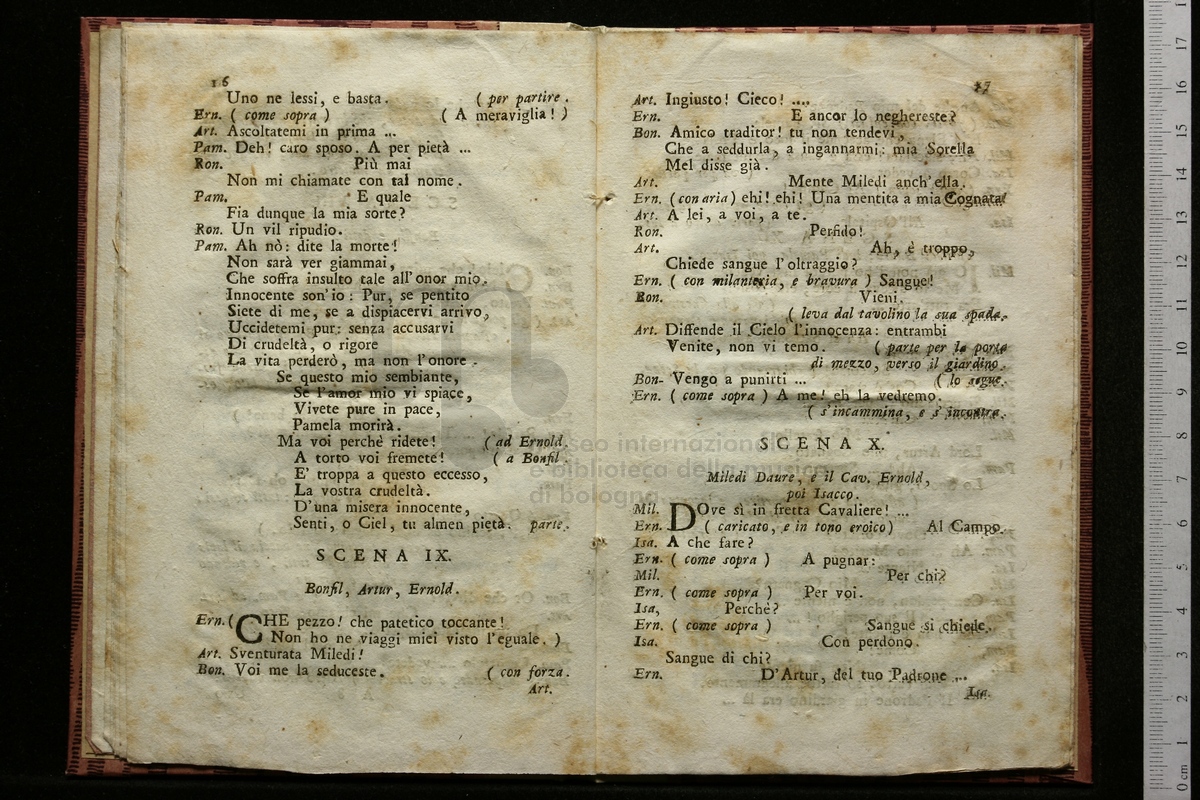 16
Uno ne lessi, e basta. ( per partire.
Ern. ( come sopra ) ( A meraviglia! )
Art. Ascoltatemi in prima ...
Pam. Deh! caro sposo. A per pietà ...
Ron. Più mai
Non mi chiamate con tal nome.
Pam. E quale
Fia dunque la mia sorte?
Ron. Un vil ripudio.
Pam. Ah nò: dite la morte!
Non sarà ver giammai,
Che soffra insulto tale all'onor mio.
Innocente son'io: Pur, se pentito
Siete di me, se a dispiacervi arrivo,
Uccidetemi pur: senza accusarvi
Di crudeltà, o rigore
La vita perderò, ma non l'onore.
Se questo mio sembiante,
Se l'amor mio vi spiace,
Vivete pure in pace,
Pamela morirà.
Ma voi perchè ridete! ( ad Ernold.
A torto voi fremete! ( a Bonfil.
E' troppa a questo eccesso,
La vostra crudeltà.
D'una misera innocente,
Senti, o Ciel, tu almen pietà. parte.
SCENA IX.
Bonfil, Artur, Ernold.
Ern. ( CHE pezzo! che patetico toccante!
Non ho ne viaggi miei visto l'eguale. )
Art. Sventurata Miledi!
Bon. Voi me la seduceste. ( con forza.
Art.
17
Art. Ingiusto! Cieco! ....
Ern. E ancor lo neghereste?
Bon. Amico traditor! tu non tendevi,
Che a seddurla, a ingannarmi: mia Sorella
Mel disse già.
Art. Mente Miledi anch'ella.
Ern. ( con aria ) ehi! ehi! Una mentita a mia Cognata!
Art. A lei, a voi, a te.
Ron. Perfido!
Art. Ah, è troppo,
Chiede sangue l'oltraggio?
Ern. ( con milanteria, e bravura ) Sangue!
Bon. Vieni.
( leva dal tavolino la sua spada.
Art. Diffende il Cielo l'innocenza: entrambi
Venite, non vi temo. ( parte per la porta
di mezzo, verso il giardino.
Bon- Vengo a punirti ... ( lo segue.
Ern. ( come sopra ) A me! eh la vedremo.
( s'incammina, e s'incontra.
SCENA X.
Miledi Daure, e il Cav. Ernold,
poi Isacco.
Mil. DOve sì in fretta Cavaliere! ...
Ern. ( caricato, e in tono eroico ) Al Campo.
Isa. A che fare?
Ern. ( come sopra ) A pugnar:
Mil. Per chi?
Ern. ( come sopra ) Per voi.
Isa, Perchè?
Ern. ( come sopra ) Sangue si chiede.
Isa. Con perdono.
Sangue di chi?
Ern. D'Artur, del tuo Padrone ...
Isa.
museo internazionale
e biblioteca della musica
di bologna